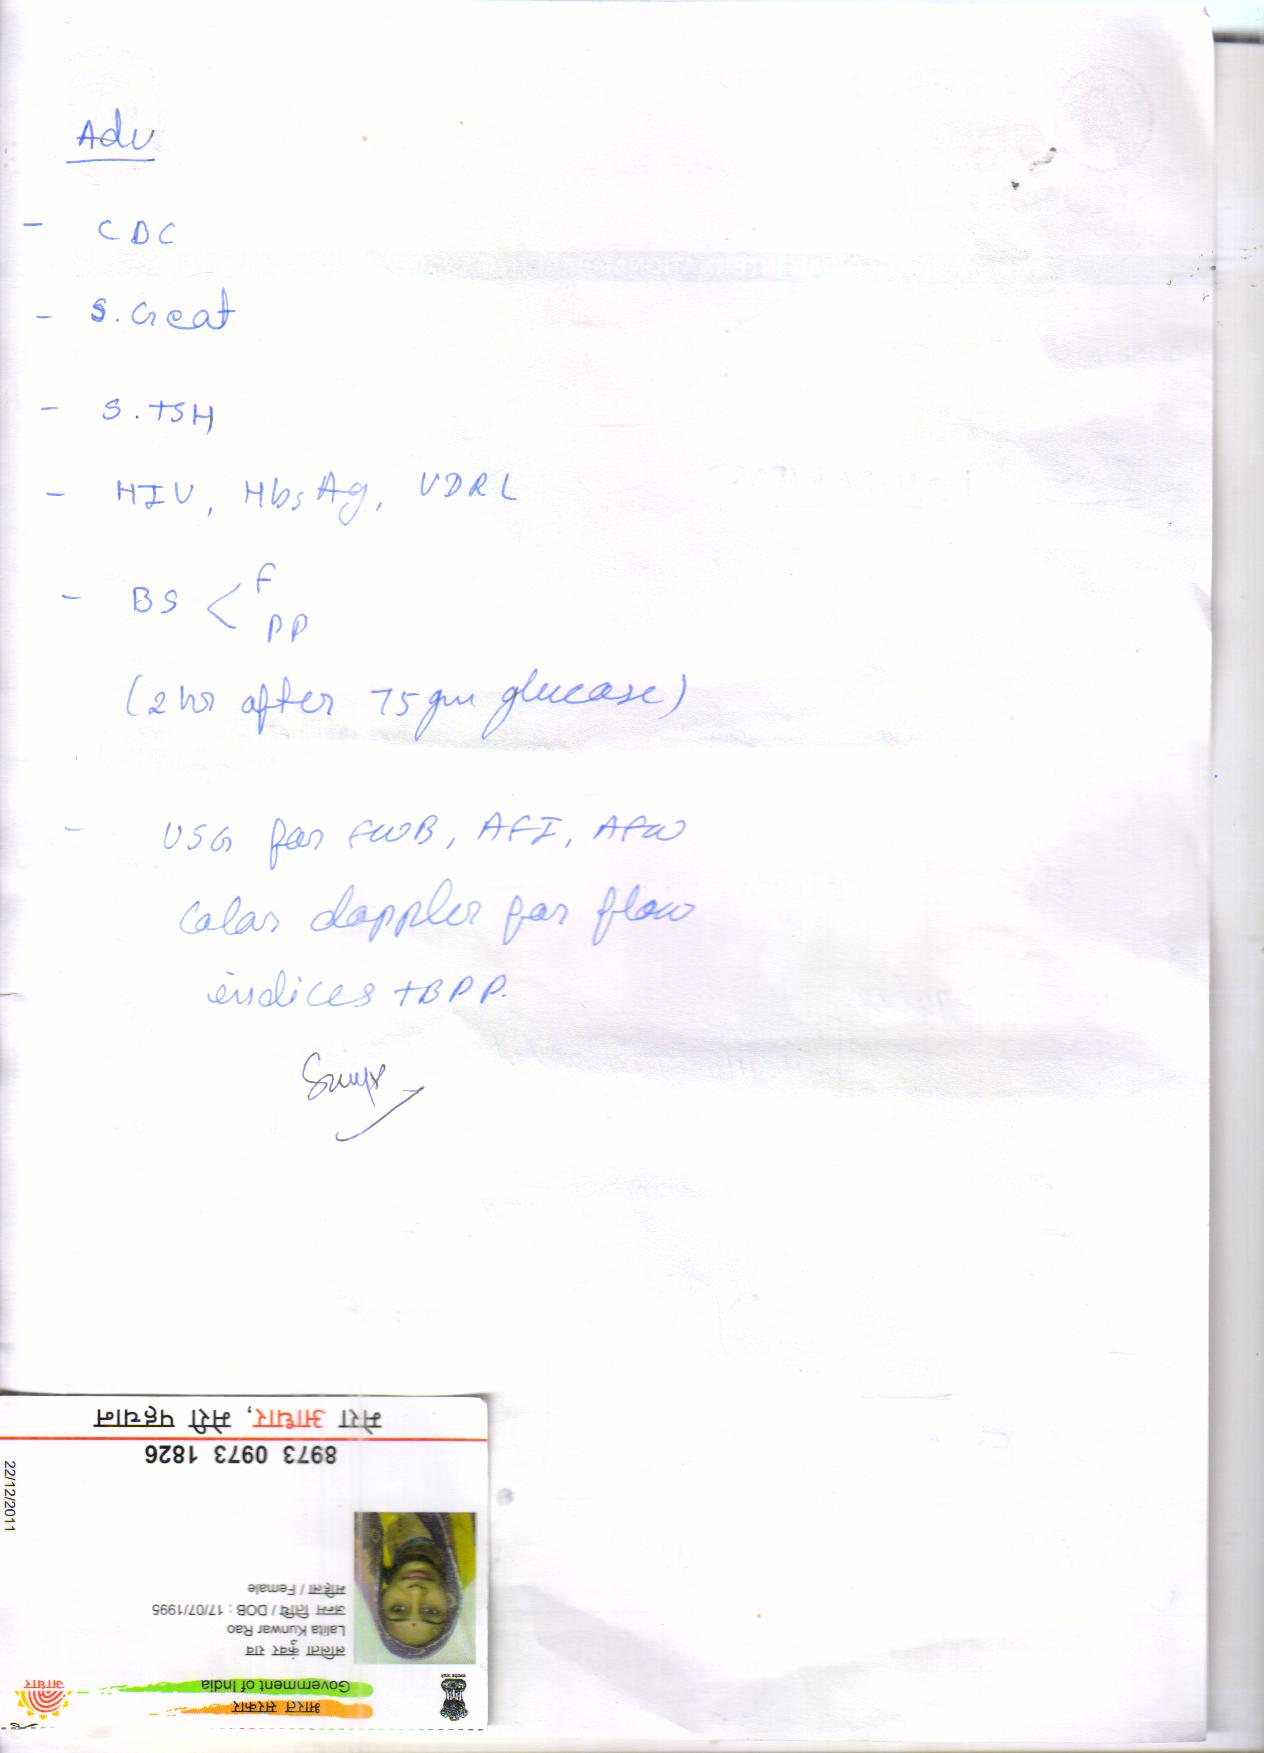 Adv
- CDC
- S. Creat
- S. TSH
- HIV, HbsAg, VDRL
- BS < F
PP
(2 hr after 75 gm glucose)
- USG for FWB, AFI, AFW
Color doppler for flow
indices + BPP.
मेरा आधार, मेरी पहचान
8973 0973 1826
22/12/2011
महिला / Female
जन्म तिथि / DOB : 17/07/1995
Lalita Kunwar Rao
ललिता कुंवर राव
Government of India
भारत सरकार
आधार